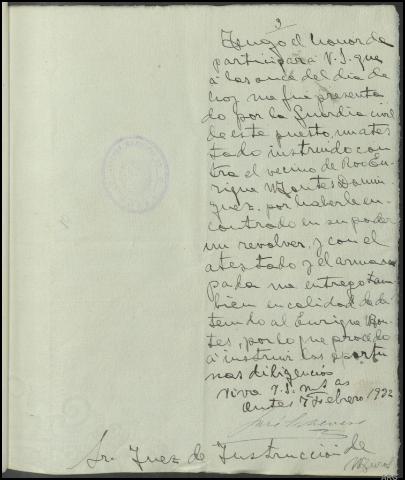 3
Tengo el honor de
participar a V.S. que
a las once del dia de
hoy me fue presenta
do por la Guardia civil
de este puesto, un ates
tado instruido con
tra el vecino de Roo En-
rique Montes Domin
guez, por haberle en-
contrado en su poder
un revolver, y con el
atestado y el arma
pada me entrego tam
bien en calidad de de
tenido al Enrique Mon-
tes, por lo que procedo
a instruir las oportu
nas diligencias
Viva V.S. ms as
7 Febrero 1932
Sr. Juez de Instrucción de